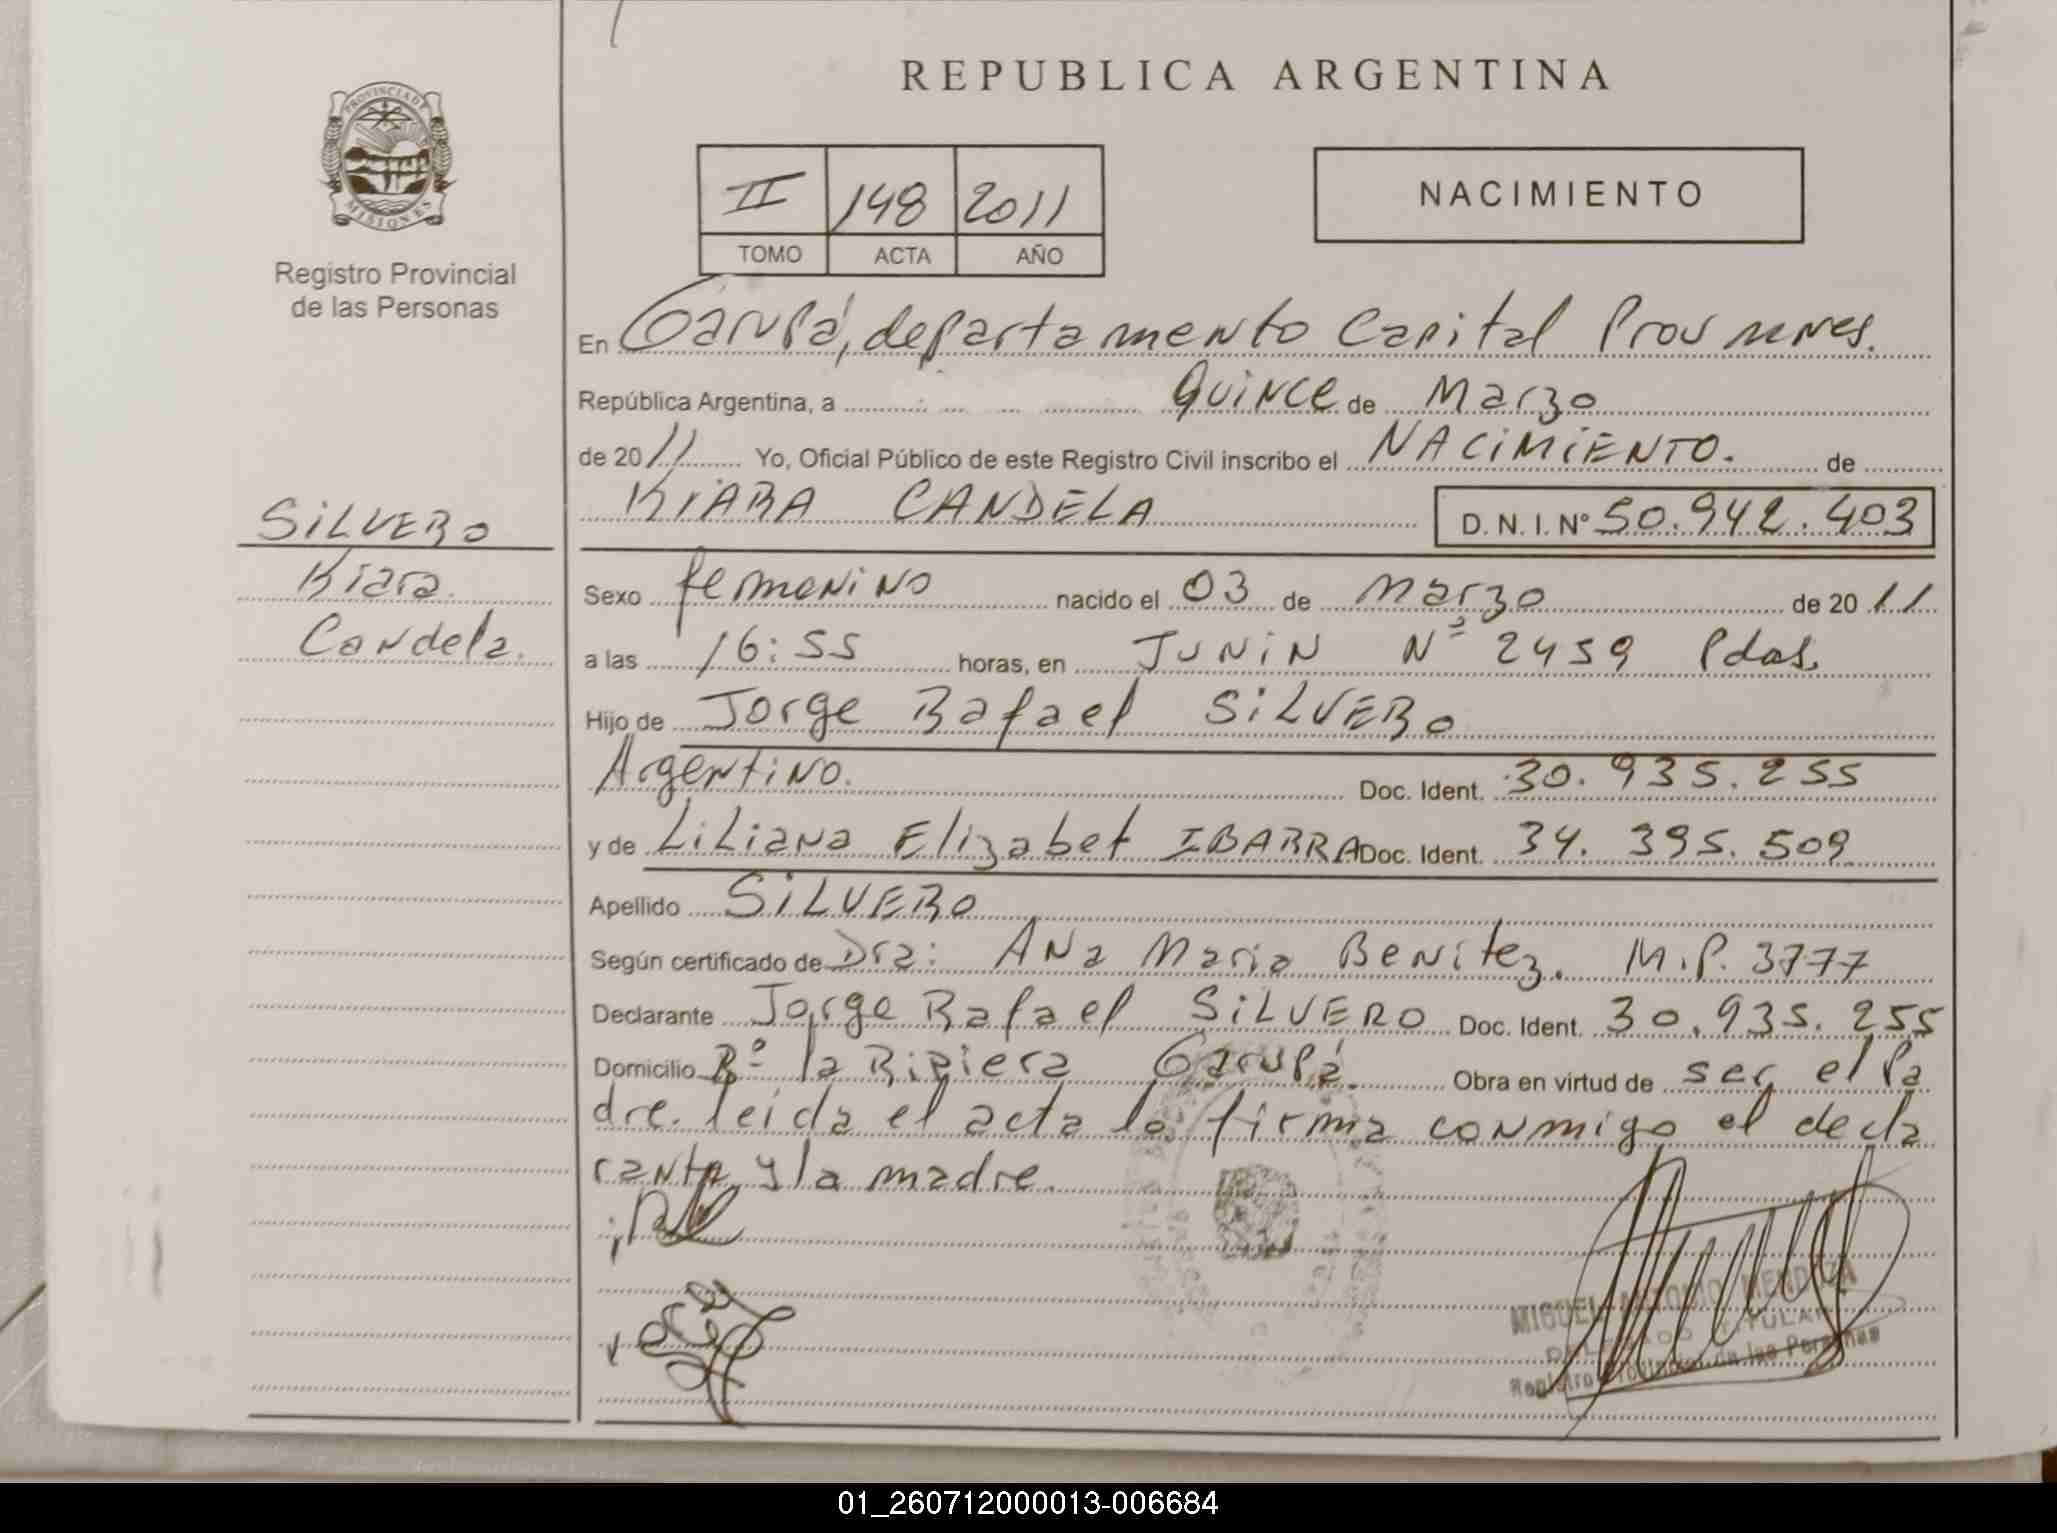 REPUBLICA ARGENTINA
PROVINCIA DE
MISIONES
Registro Provincial
de las Personas
II 148 2011
TOMO ACTA AÑO
NACIMIENTO
En Garupá, departamento Capital Prov
República Argentina, a Quince de Marzo
de 2011 Yo, Oficial Público de este Registro Civil inscribo el NACIMIENTO. de
KIARA CANDELA D. N. I. Nº 50.942.403
SILVERO
Kiara
Candela.
Sexo femenino nacido el 03 de marzo de 2011
a las 16:55 horas, en JUNIN Nº 2459 Pdas.
Hijo de Jorge Rafael SILVERO
Argentino. Doc. Ident. 30.935.255
y de Liliana Elizabet IBARRA Doc. Ident. 34.395.509
Apellido SILVERO
Según certificado de Dra: Ana Maria Benitez. M.P. 3777
Declarante Jorge Rafael SILVERO Doc. Ident. 30.935.255
Domicilio Bº la Riviera Garupá. Obra en virtud de ser el Pa
dre. leida el acta la firma conmigo el decla
rante y la madre.
MIGUEL ANTONIO MENDOZA
DELEGADO TITULAR
Registro Provincial de las Personas
01_260712000013-006684